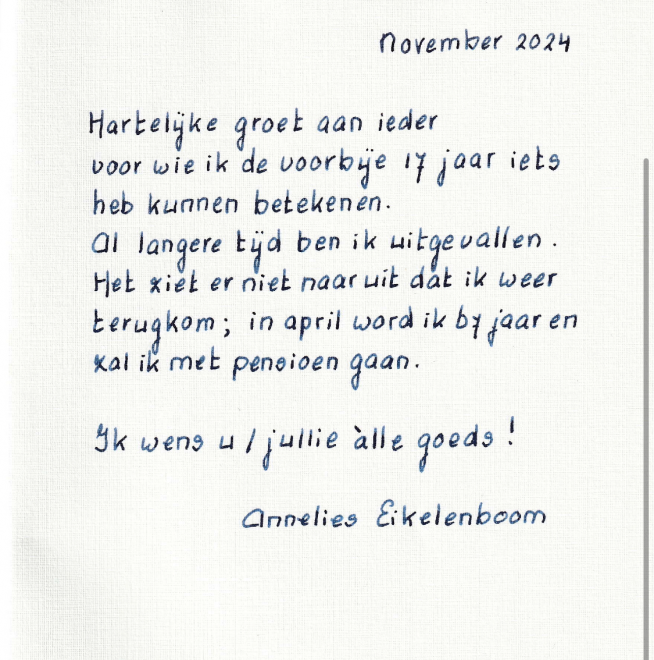 November 2024
Hartelijke groet aan ieder
voor wie ik de voorbije 17 jaar iets
heb kunnen betekenen.
Al langere tijd ben ik uitgevallen.
Het ziet er niet naar uit dat ik weer
terugkom; in april word ik 67 jaar en
zal ik met pensioen gaan.
Ik wens u / jullie àlle goeds!
Annelies Eikelenboom